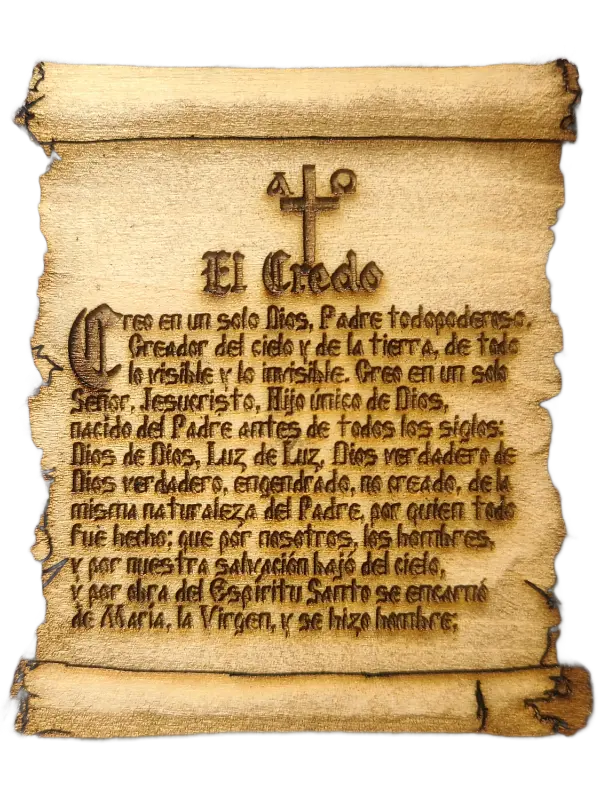 A O
El Credo
Creo en un solo Dios, Padre todopoderoso,
Creador del cielo y de la tierra, de todo
lo visible y lo invisible. Creo en un solo
Señor, Jesucristo, Hijo único de Dios,
nacido del Padre antes de todos los siglos:
Dios de Dios, Luz de Luz, Dios verdadero de
Dios verdadero, engendrado, no creado, de la
misma naturaleza del Padre, por quien todo
fue hecho; que por nosotros, los hombres,
y por nuestra salvación bajó del cielo,
y por obra del Espíritu Santo se encarnó
de María, la Virgen, y se hizo hombre;